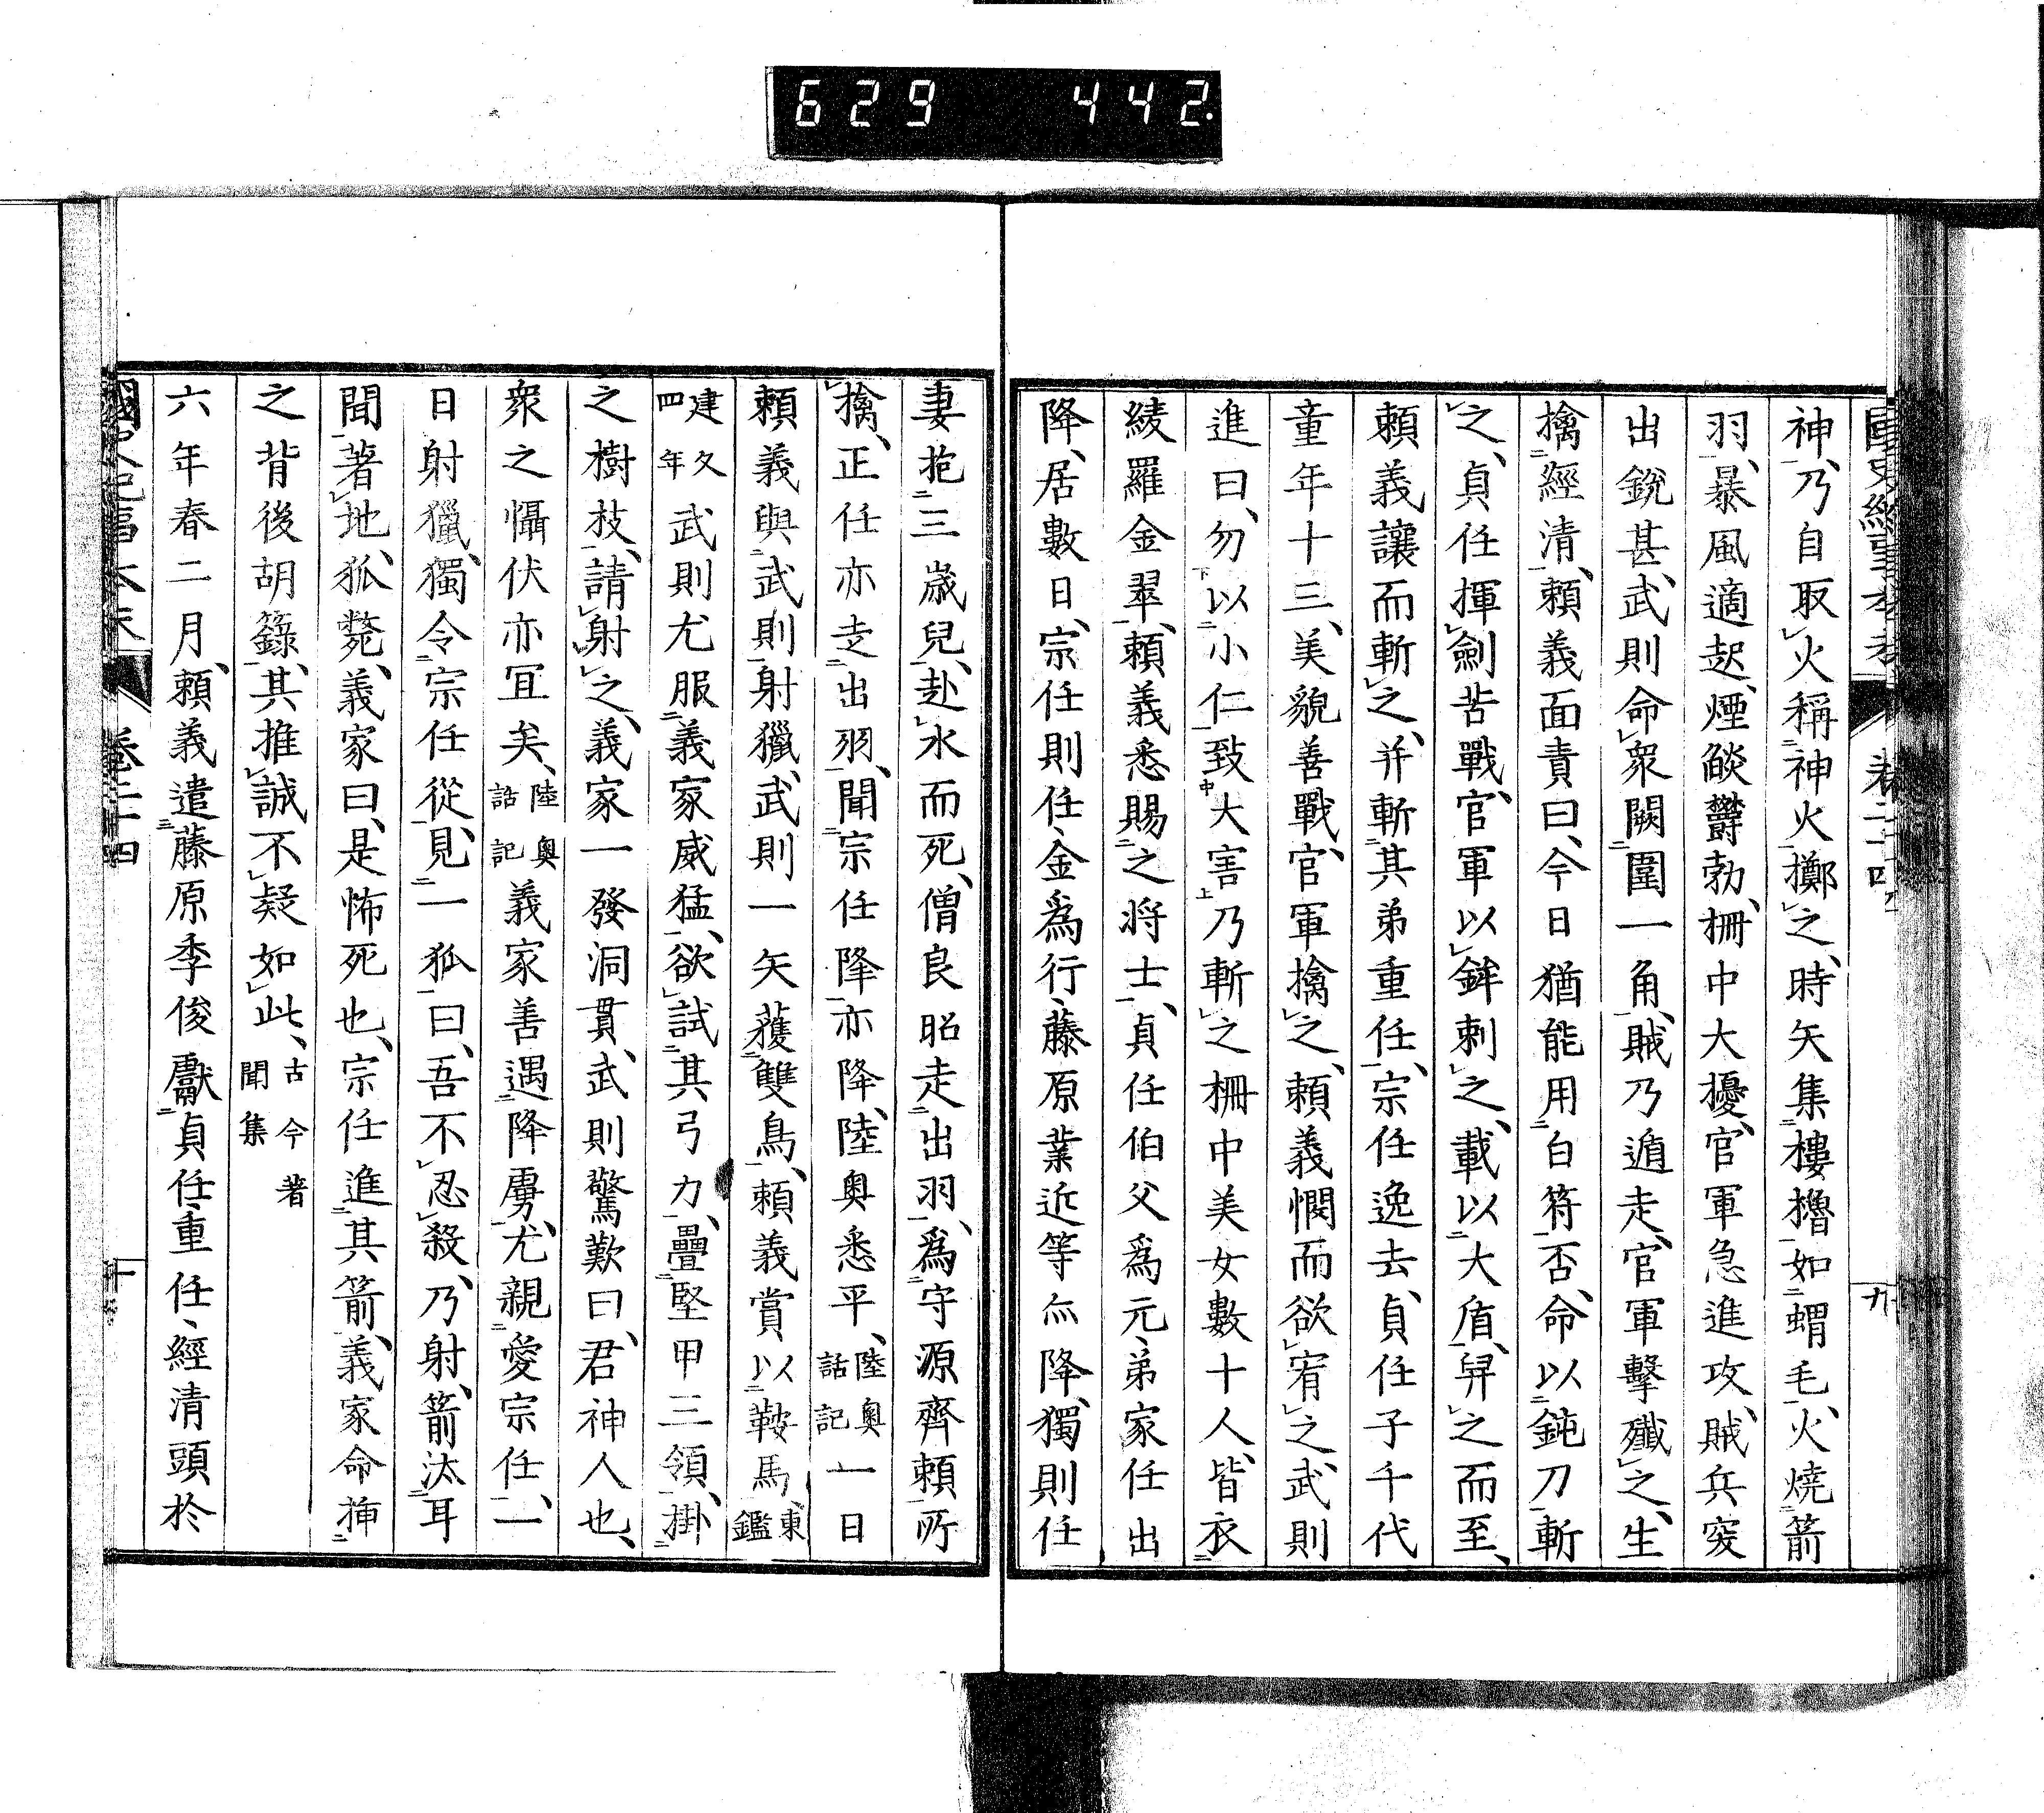 629 442
國史紀事本末 卷二十四 九
神、乃自取火稱神火擲之、時矢集樓櫓如蝟毛、火燒箭
羽、暴風適起、煙燄鬱勃、柵中大擾、官軍急進攻、賊兵突
出銳甚、武則命衆闕圍一角、賊乃遁走、官軍擊殲之、生
擒經清、賴義面責曰、今日猶能用白符否、命以鈍刀斬
之、貞任揮劍苦戰、官軍以鉾刺之、載以大盾、舁之而至、
賴義讓而斬之、并斬其弟重任、宗任逸去、貞任子千代
童年十三、美貌善戰、官軍擒之、賴義憫而欲宥之、武則
進曰、勿以小仁致大害、乃斬之柵中美女數十人、皆衣
綾羅金翠、賴義悉賜之將士、貞任伯父爲元、弟家任出
降、居數日、宗任則任、金爲行、藤原業近等亦降、獨則任
妻抱三歲兒、赴水而死、僧良昭走出羽、爲守源齊賴所
擒、正任亦走出羽、聞宗任降亦降、陸奧悉平、陸奧話記一日
賴義與武則射獵、武則一矢獲雙鳥、賴義賞以鞍馬、東鑑
建久四年武則尤服義家威猛、欲試其弓力、疊堅甲三領、掛
之樹枝、請射之、義家一發洞貫、武則驚歎曰、君神人也、
衆之懾伏亦宜矣、陸奧話記義家善遇降虜、尤親愛宗任、一
日射獵、獨令宗任從、見一狐曰、吾不忍殺、乃射、箭汰耳
聞著地、狐斃、義家曰、是怖死也、宗任進其箭、義家命挿
之背後胡籙、其推誠不疑如此、古今著聞集
六年春二月、賴義遣藤原季俊獻貞任、重任、經清頭於
國史紀事本末 卷二十四 十